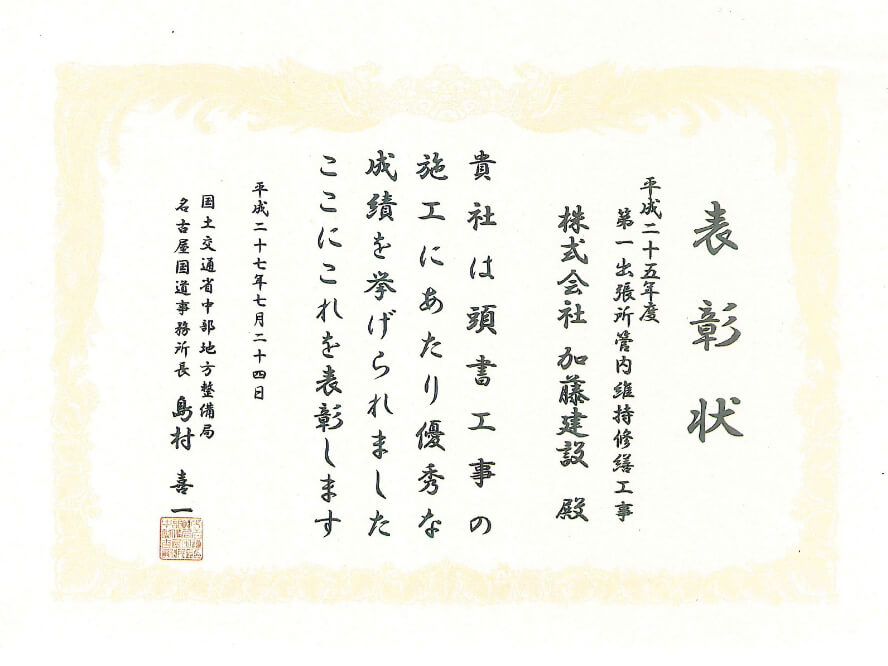 表彰状
平成二十五年度
第一出張所管内維持修繕工事
株式会社 加藤建設 殿
貴社は頭書工事の
施工にあたり優秀な
成績を挙げられました
ここにこれを表彰します
平成二十七年七月二十四日
国土交通省中部地方整備局
名古屋国道事務所長 島村 喜一